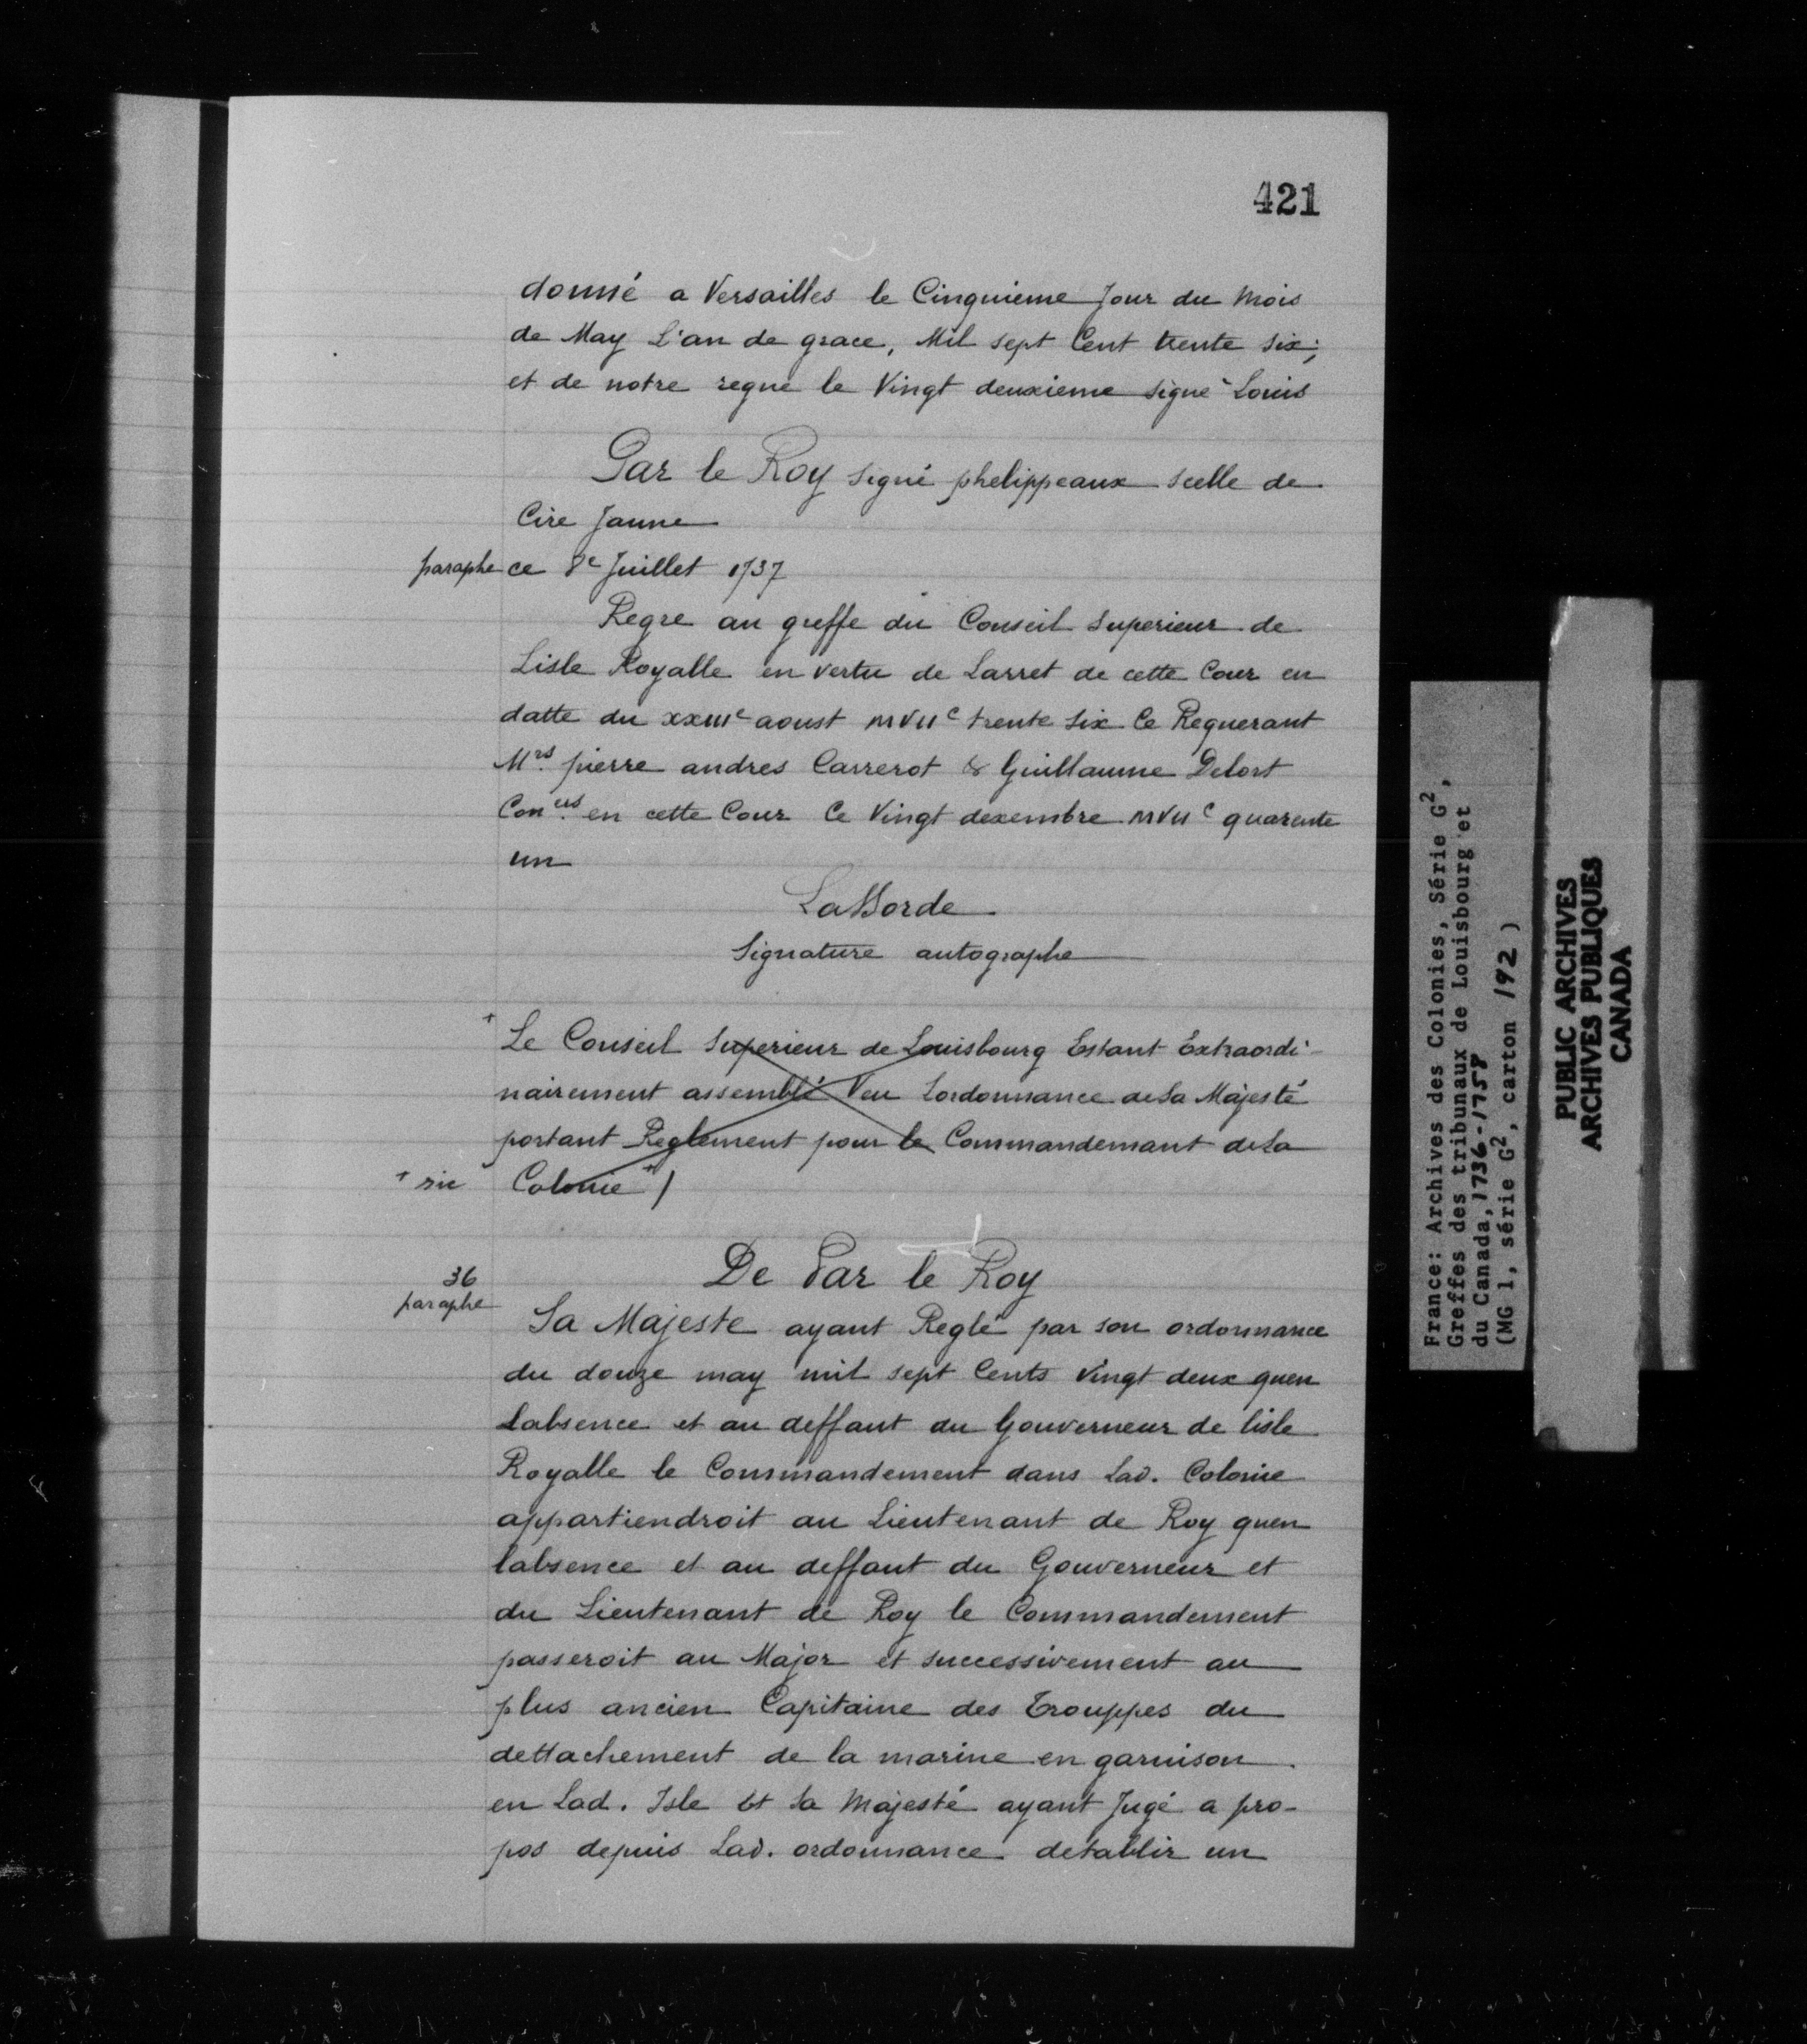 421
donné a Versailles le Cinquieme Jour du Mois
de May L'an de grace, Mil sept Cent trente six;
et de notre regne le Vingt deuxieme signe Louis
Par le Roy signé phelippeaux scelle de
Cire Jaune
paraphe ce 8e Juillet 1737
Regre au greffe du Conseil Superieur de
Lisle Royalle en vertu de Larret de cette Cour en
datte du xxiiie aoust mviic trente six Ce Requerant
Mrs. pierre andres Carrerot & Guillaume Delort
Con.ers en cette Cour Ce Vingt dexembre mviic quarente
un
LaBorde
Signature autographe
+ Le Conseil Superieur de Louisbourg Estant Extraordi-
nairement assemblé Veu Lordonnance de Sa Majesté
portant Reglement pour le Commandemant de La
+ sic Colonie +)
De Par le Roy
36
paraphe
Sa Majeste ayant Reglé par son ordonnance
du douze may mil sept Cents vingt deux quen
Labsence et au deffaut du Gouverneur de lisle
Royalle le Commandement dans Lad. Colonie
appartiendroit au Lieutenant de Roy quen
labsence et au deffaut du Gouverneur et
du Lieutenant de Roy le Commandement
passeroit au Major et successivement au
plus ancien Capitaine des Trouppes du
dettachement de la marine en garnison
en Lad. Isle Et Sa Majesté ayant Jugé a pro-
pos depuis Lad. ordonnance detablir un
France: Archives des Colonies, Série G2,
Greffes des tribunaux de Louisbourg et
du Canada, 1736-1758
(MG 1, série G2, carton 192)
PUBLIC ARCHIVES
ARCHIVES PUBLIQUES
CANADA